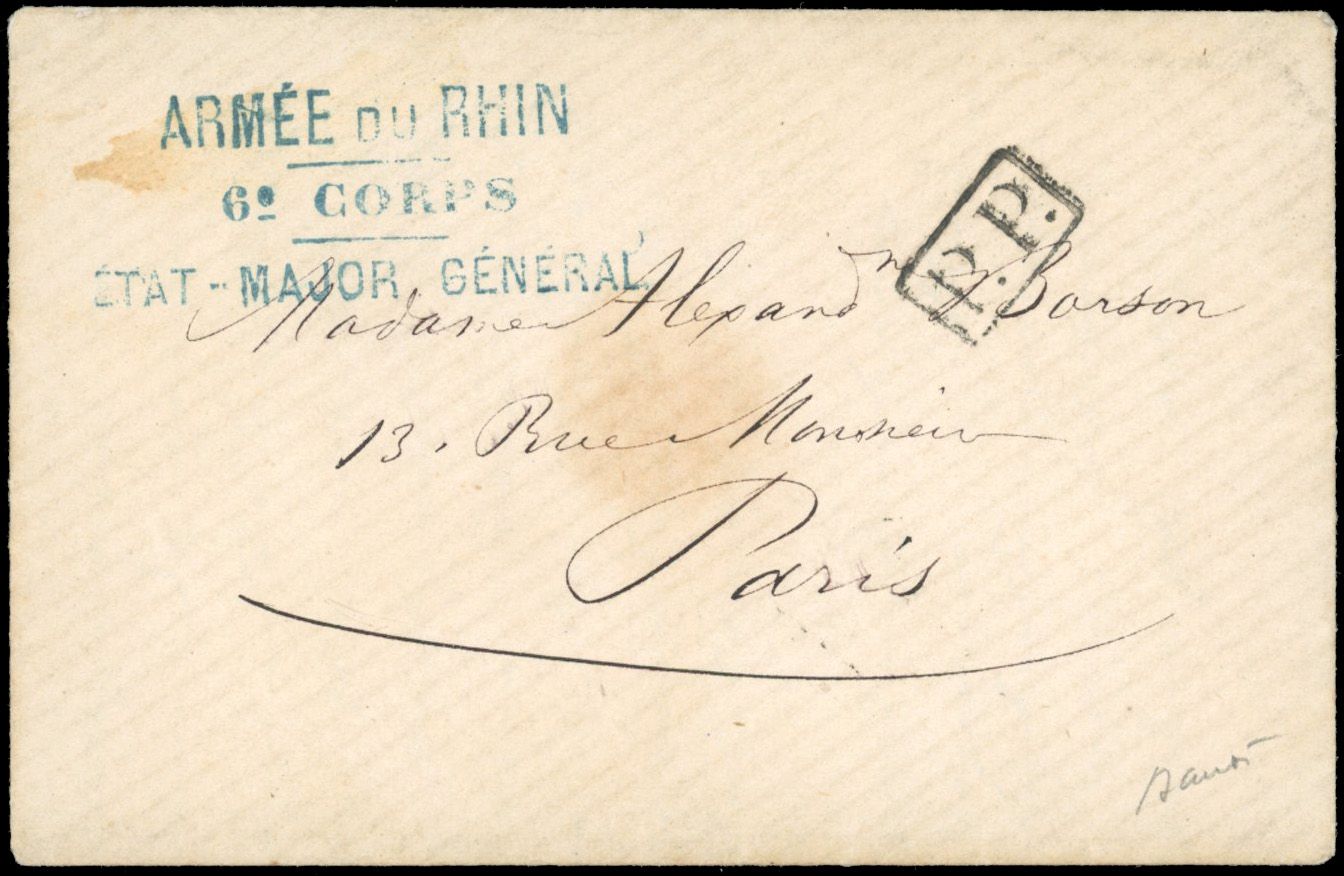 ARMÉE DU RHIN
6e CORPS
ÉTAT-MAJOR GÉNÉRAL
P.P.
Madame Alexandrine Borson
13. Rue Monsieur
Paris